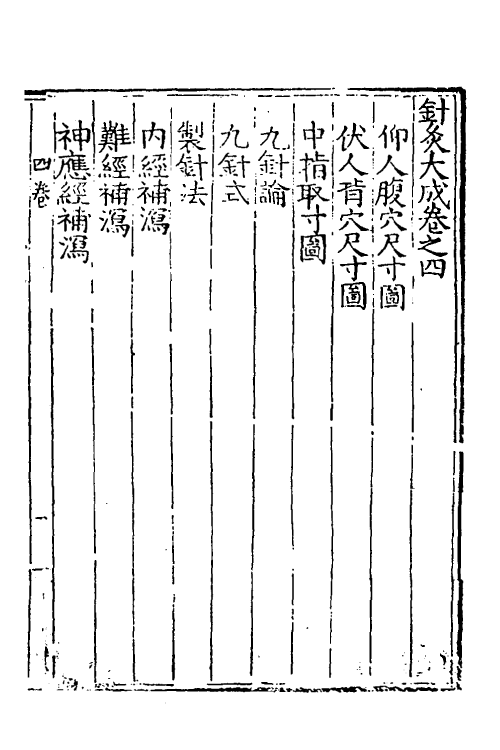 針灸大成卷之四
仰人腹穴尺寸圖
伏人背穴尺寸圖
中指取寸圖
九針論
九針式
製針法
内經補瀉
難經補瀉
神應經補瀉
四卷
一